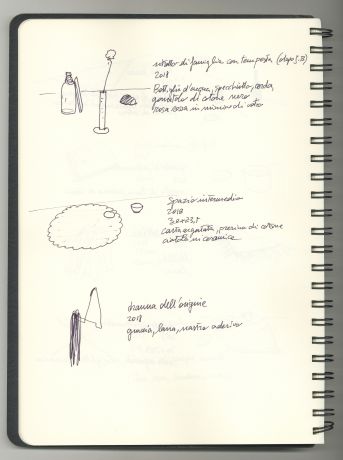 ritratto di famiglia con tempesta (dopo J.B)
2018
Bottiglia d'acqua, specchietto, corda,
gomitolo di cotone nero
rosa rossa in
spazio intermedio
2018
carta argentata, presina di cotone
ciotola in ceramica
dramma dell'origine
2018
graccia, lana, nastro adesivo